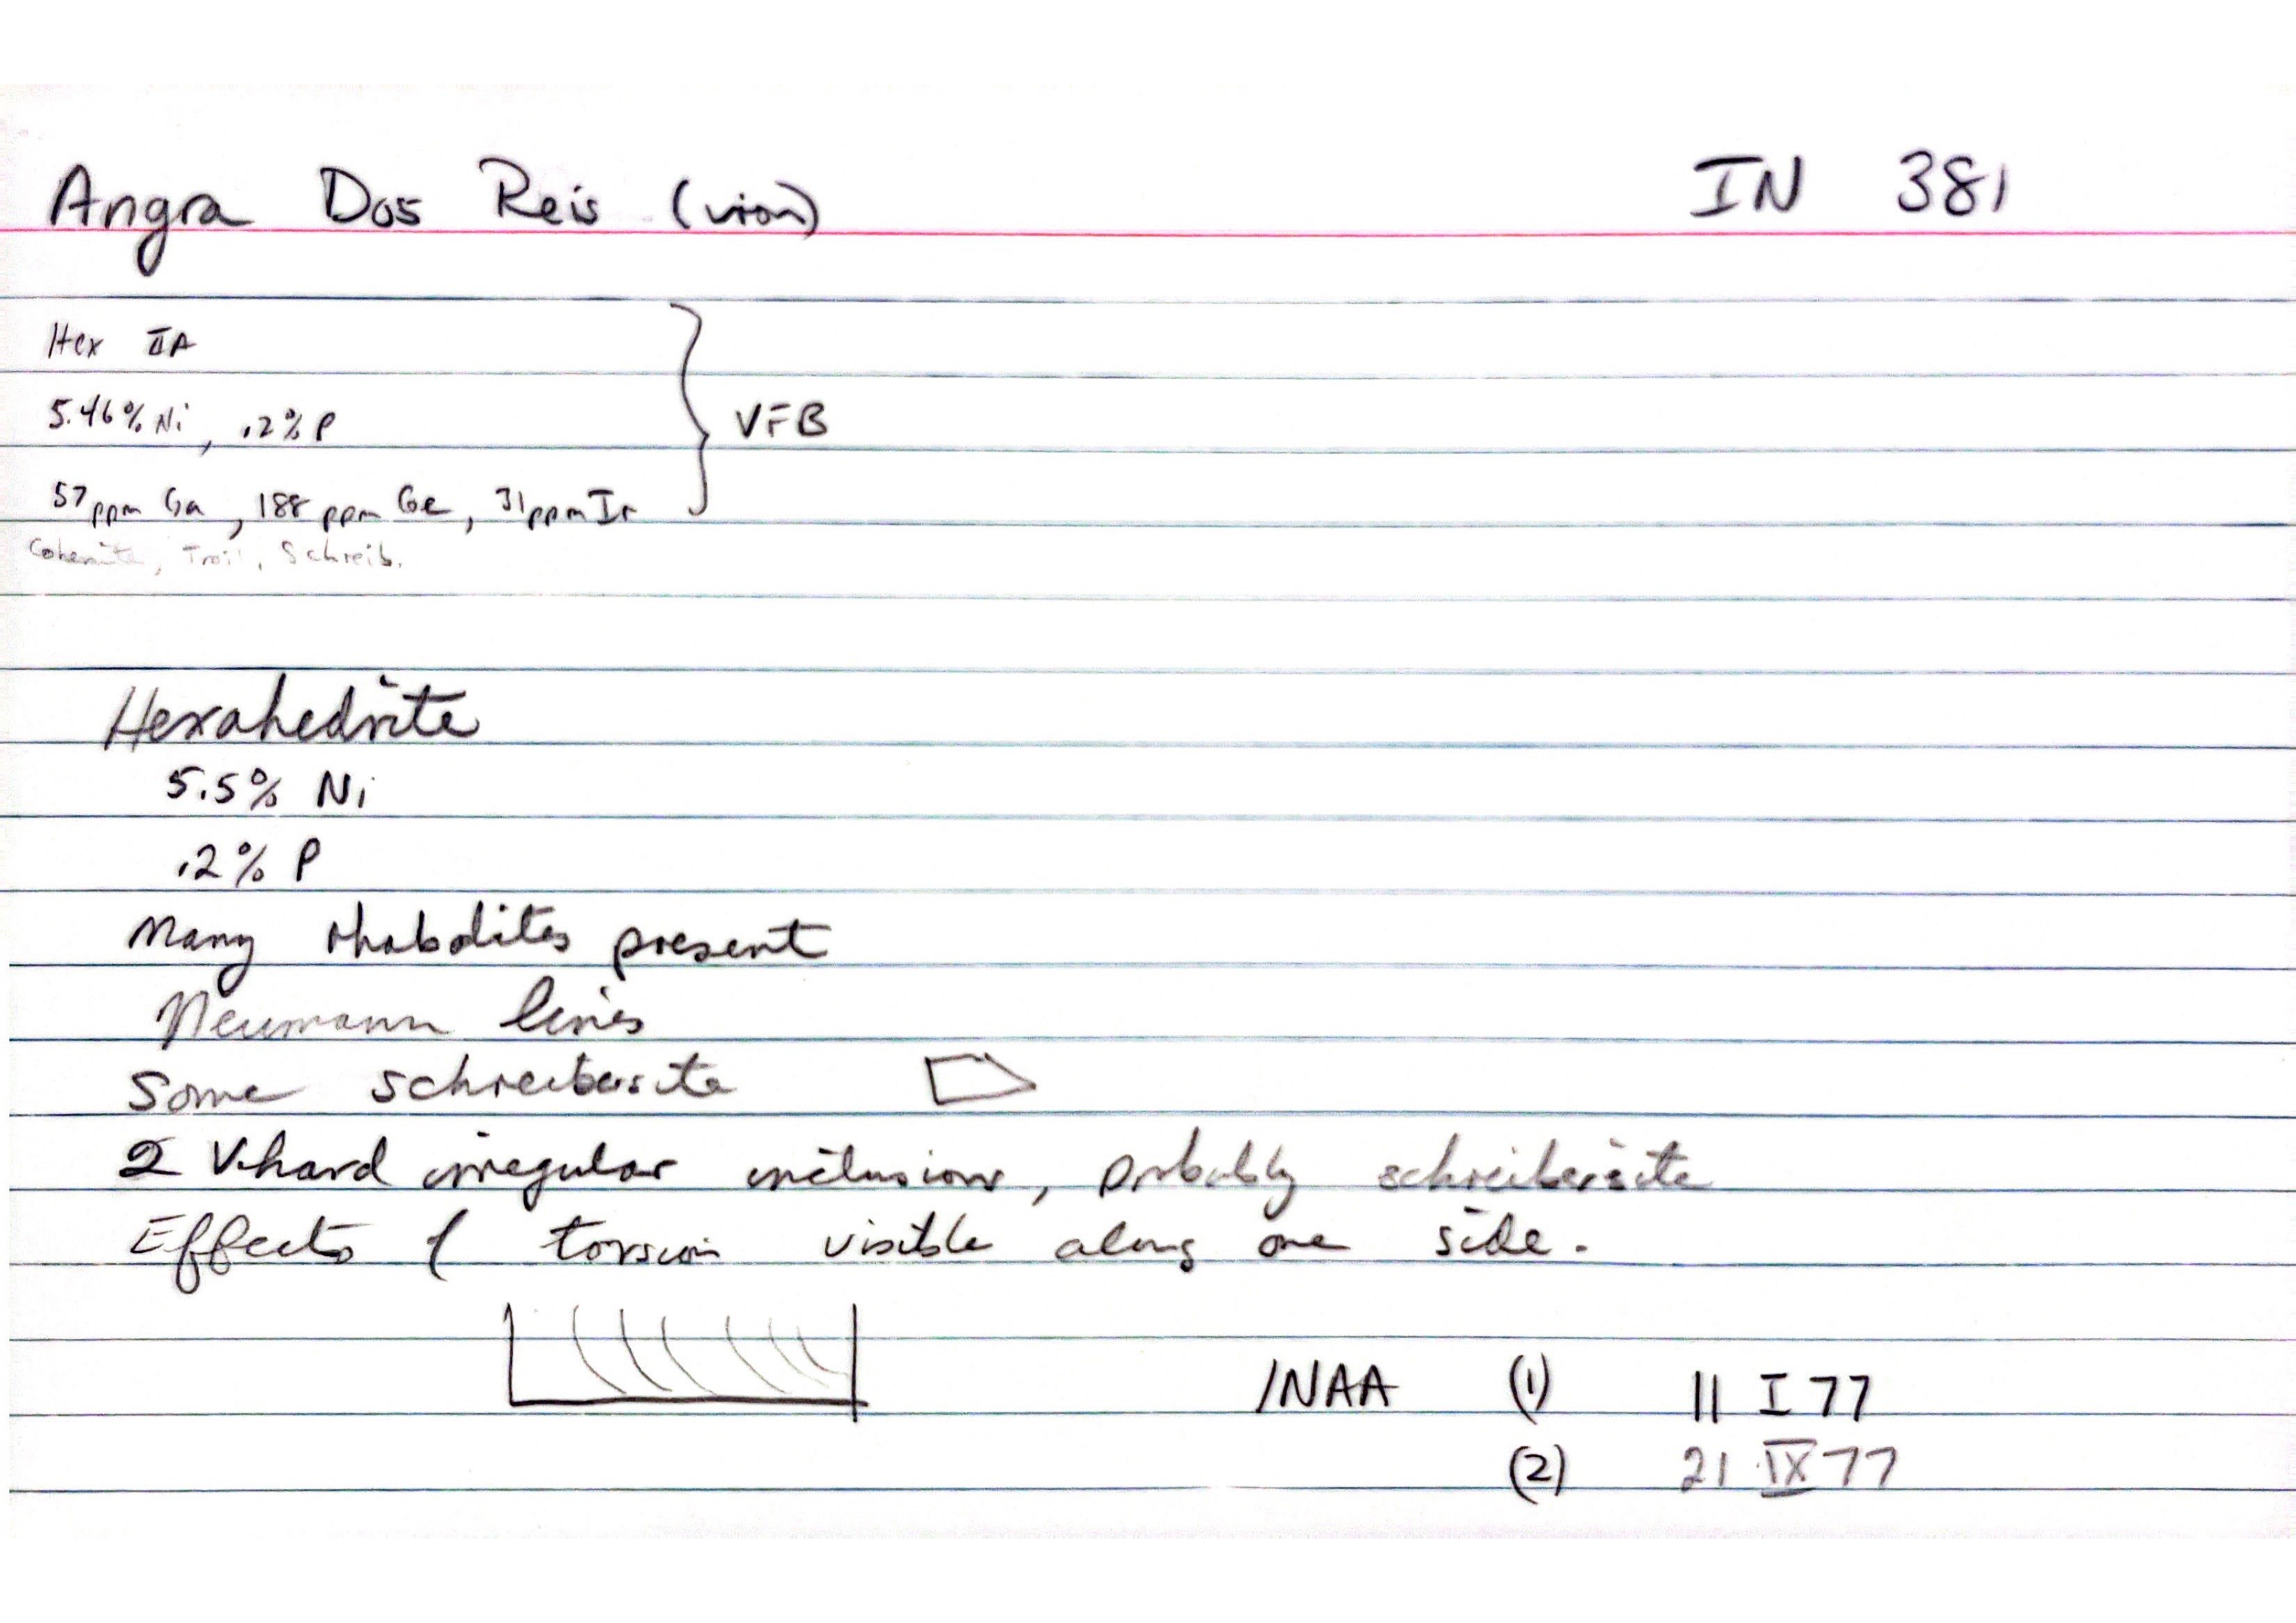 Angra Dos Reis (iron) IN 381
Hex IIA
5.46% Ni, .2% P
VFB
57ppm Ga, 188 ppm Ge, 31ppm Ir
Cohenite, Troil, Schreib.
Hexahedrite
5.5% Ni
.2% P
Many rhabdites present
Neumann lines
Some schreibersite
2 V.hard irregular inclusions, probably schreibersite
Effects of torsion visible along one side.
INAA (1) 11 I 77
(2) 21 IX 77